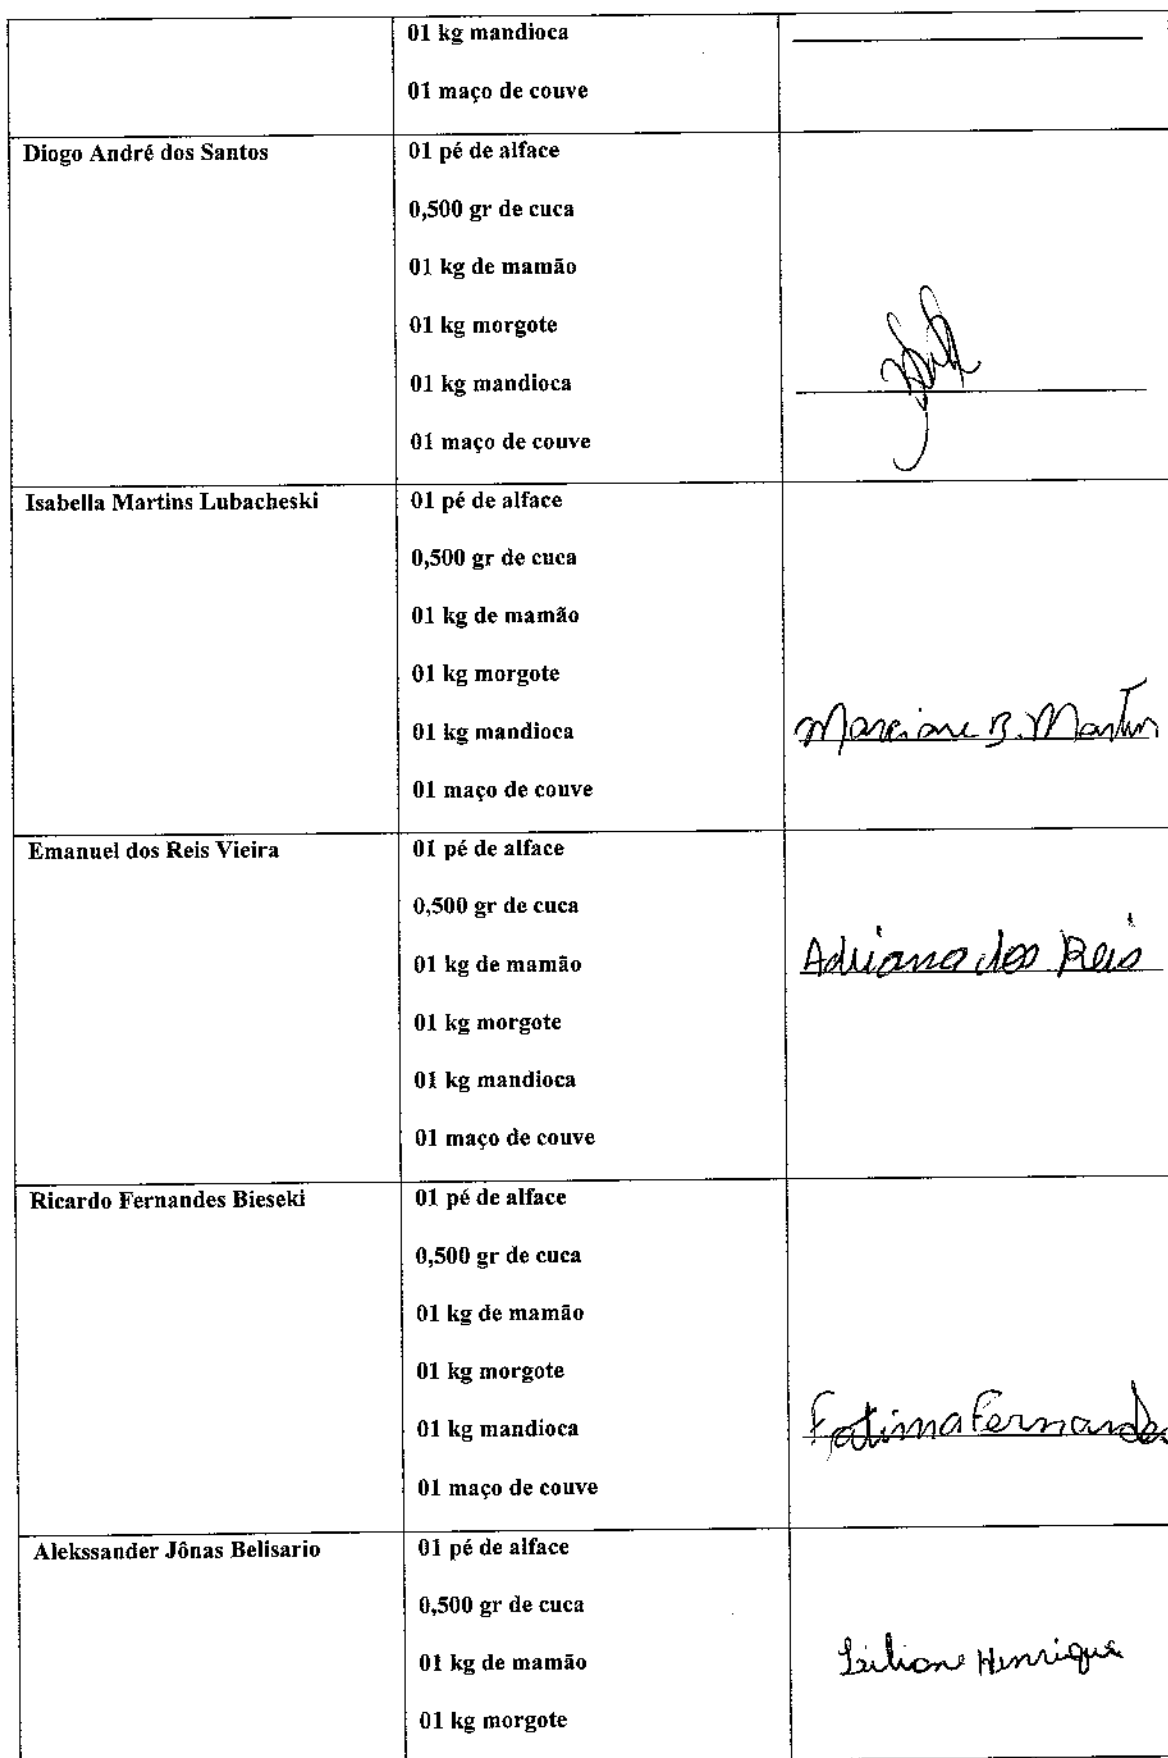 01 kg mandioca
01 maço de couve
Diogo André dos Santos
01 pé de alface
0,500 gr de cuca
01 kg de mamão
01 kg morgote
01 kg mandioca
01 maço de couve
Isabella Martins Lubacheski
01 pé de alface
0,500 gr de cuca
01 kg de mamão
01 kg morgote
01 kg mandioca
Marciane B. Martin
01 maço de couve
Emanuel dos Reis Vieira
01 pé de alface
0,500 gr de cuca
01 kg de mamão
Adriana dos Reis
01 kg morgote
01 kg mandioca
01 maço de couve
Ricardo Fernandes Bieseki
01 pé de alface
0,500 gr de cuca
01 kg de mamão
01 kg morgote
01 kg mandioca
Fatima Fernandes
01 maço de couve
Alekssander Jônas Belisario
01 pé de alface
0,500 gr de cuca
01 kg de mamão
Henrique
01 kg morgote